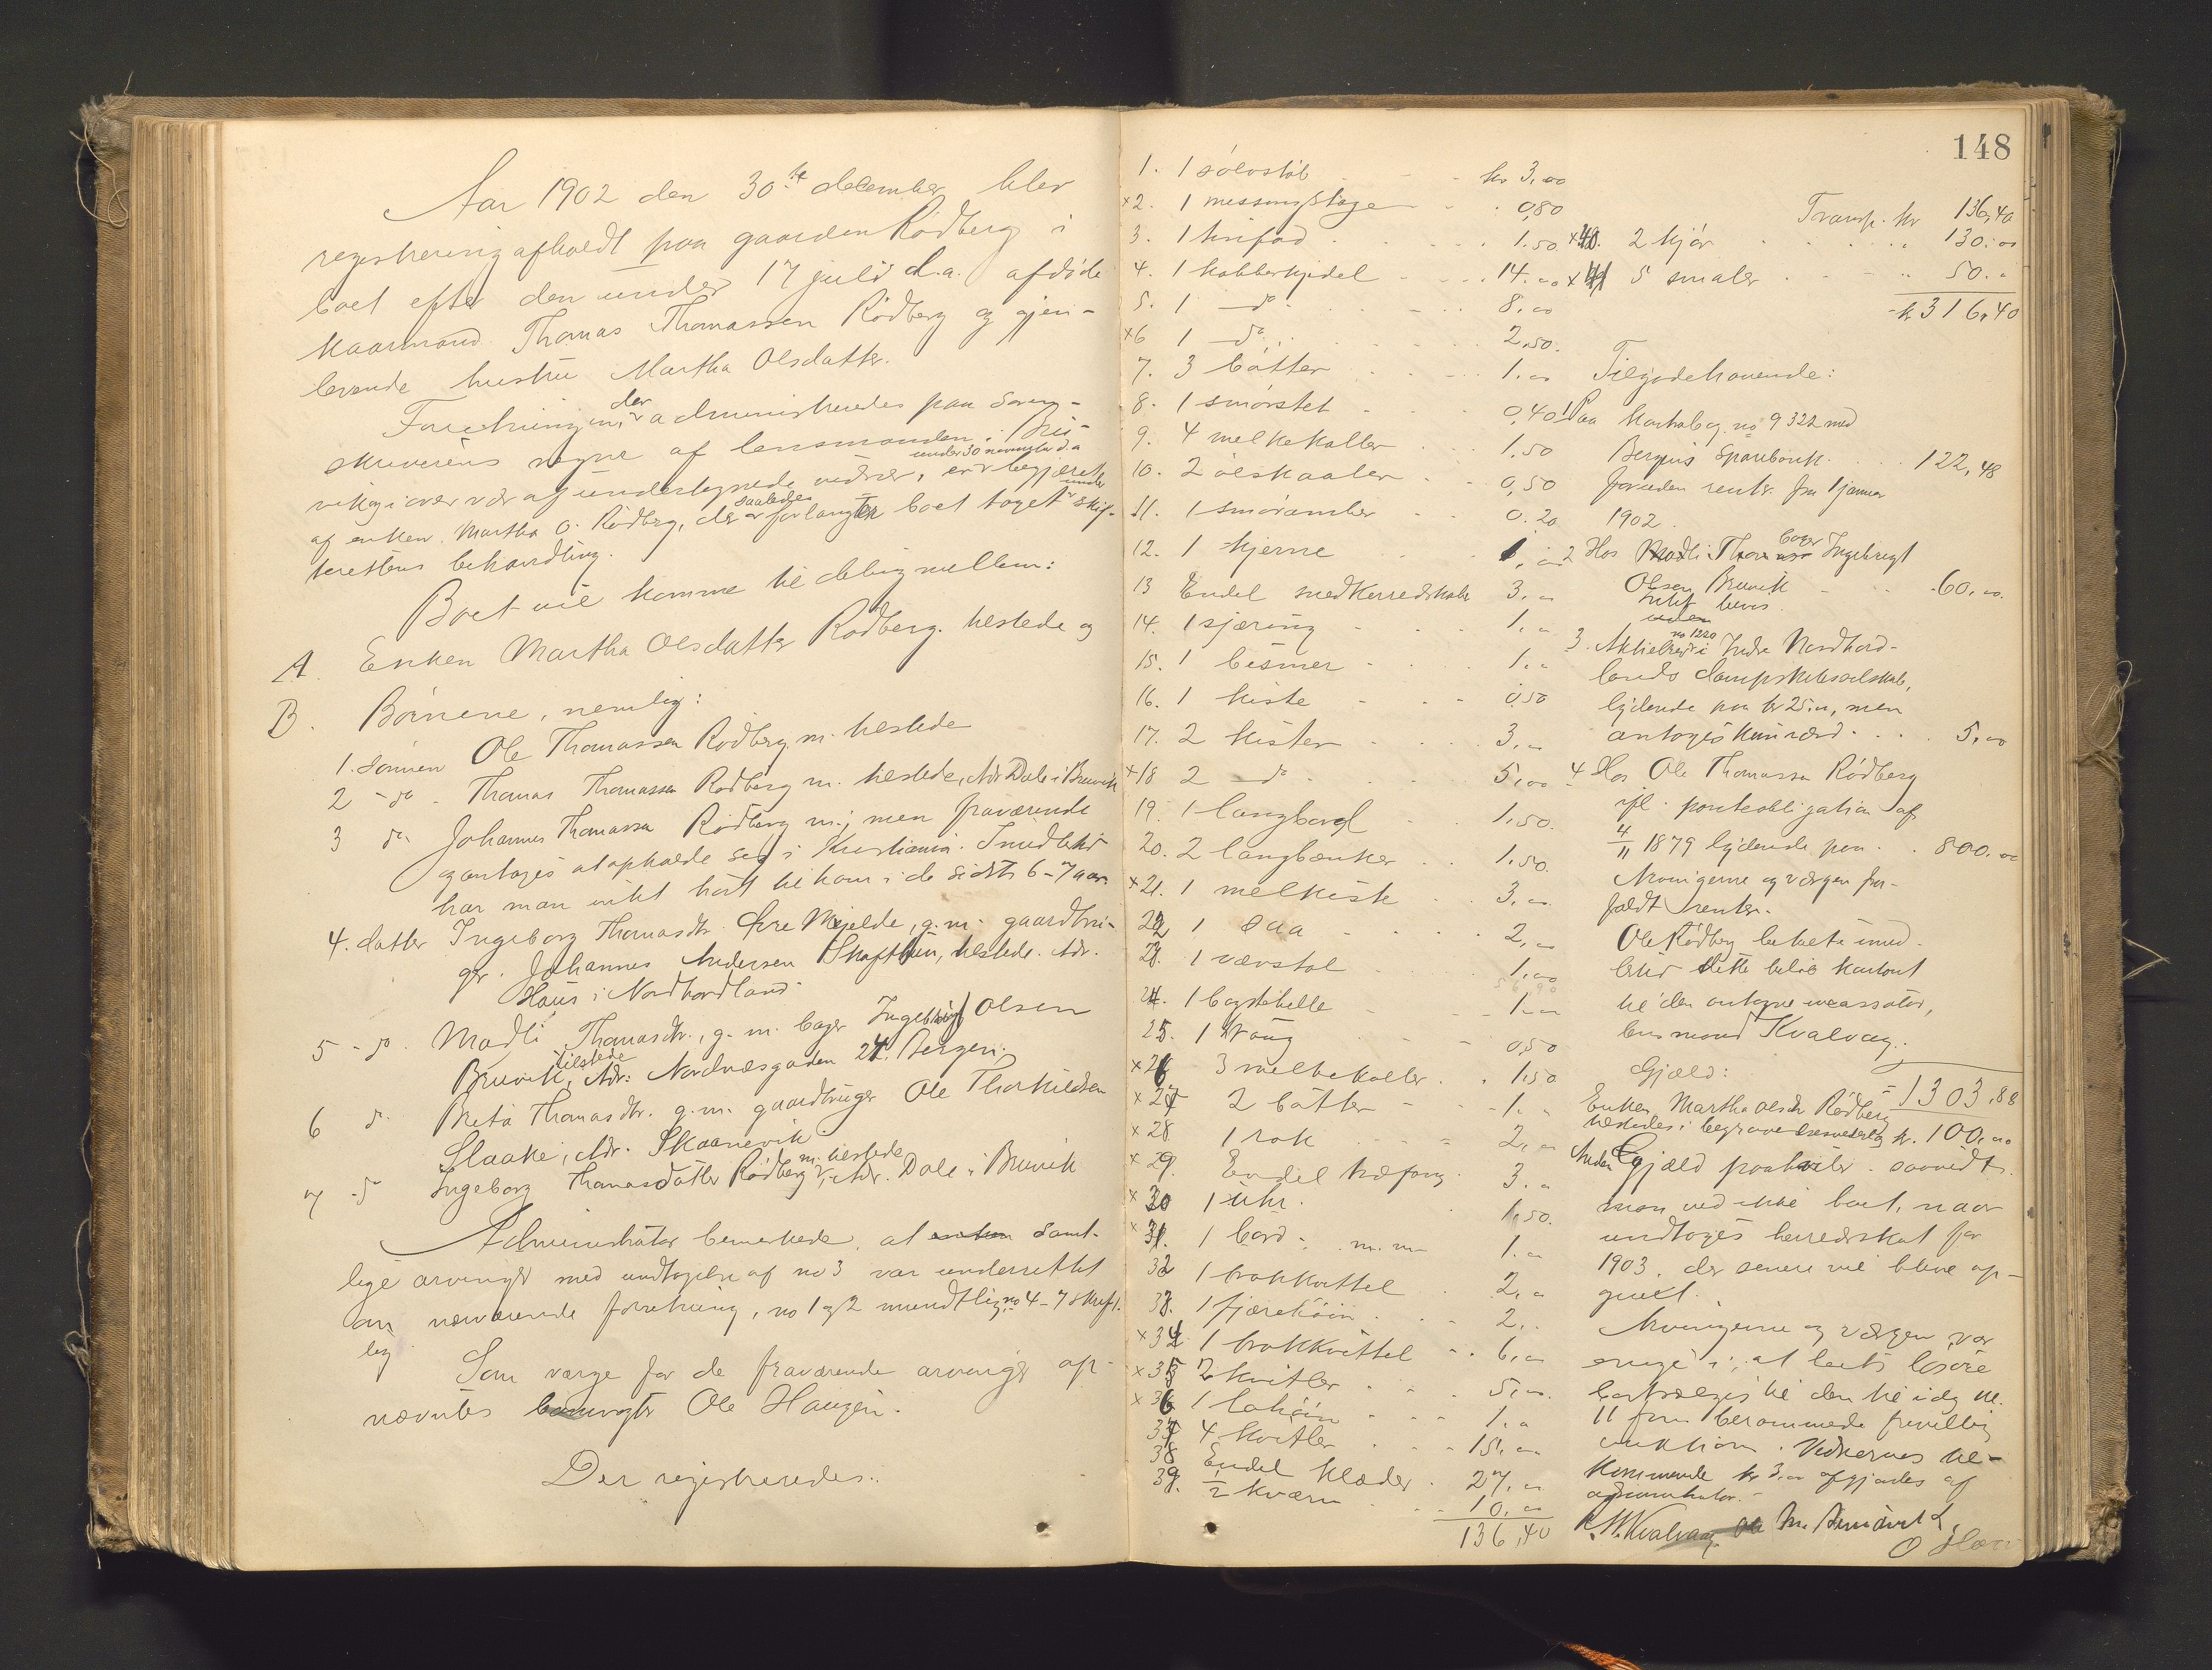 Aar 1902 den 30te december blev
registrering afholdt paa gaarden Rödberg i
boet efter den under 17 juli d.a. afdöde
kaarmand Thomas Thomassen Rödberg og gjen-
levende hustru Martha Olsdatter.
Forretningen, der administreredes paa Soren-
skriverens vegne af lensmanden i
under 30 november d.a.
af enken Martha O. Rödberg, der saaledes forlangte boet taget under skif-
terettens behandling.
Boet vil komme til deling mellem:
A. Enken Martha Olsdatter Rödberg. tilstede og
B. Börnene, nemlig:
1. Sönnen Ole Thomassen Rödberg m. tilstede
2 - do - Thomas Thomassen Rödberg m. tilstede, Adr. Dale i Bruvik
3 do Johannes Thomassen Rödberg m.; men fraværende
og antages at opholde seg i Kristiania. Imidlertid
har man intet hört til ham i de sidste 6-7 aar.
4. datter Ingeborg Thomasdtr. Övre Mjelde, g. m. gaardbru-
ger Johannes Andersen Skaftun, tilstede. Adr.
Haus i Nordhordland.
5 - do. Madli Thomasdtr., g. m. bager Ingebrigt Olsen
Bruvik, tilstede Adr: Nordnæsgaden 24. Bergen.
6 do. Brita Thomasdtr. g. m. gaardbruger Ole Thorkildsen
Slaake, Adr. Skaanevik
7 - do Ingeborg Thomasdatter Rödberg m. tilstede, Adr. Dale i Bruvik
Administrator bemerkede, at enken samt-
lige arvinger med undtagelse af no 3 var underrettet
om nærværende forretning, no 1 og 2 mundtlig, no 4-7 skrift-
lig
Som værge for de fraværende arvinger op-
nævntes Ole Haugen.
Der registreredes:
148
1. 1 sölvstöb kr 3,00
x2. 1 messingstage 0,80
3. 1 trefod 1.50
4. 1 kobberkjedel 14.00
5. 1 do 8,00
x6 1 do 2,50.
7. 3 bötter 1.00
8. 1 smörstet 0,40
9. 4 melkekoller 1,50
10. 2 ölskaaler 0,50
11. 1 smöramber 0.20
12. 1 kjerne 1,00
13 Endel smedkerredskaber 3.00
14. 1 sjæring 1.00
15. 1 bismer 1.00
16. 1 kiste 0,50
17. 2 kister 3,00
x18 2 do 5,00
19. 1 langbord 1,50.
20. 2 langbænker 1,50.
x21. 1 melkiste 3,00
22 1 saa 2,00
23. 1 vævstol 1,00
24. 1 bagstehelle 1.00
25. 1 0,50
x26 3 melkekoller 1,50
x27 2 bötter 1.00
x28 1 rok 2,00
x29. Endel træfang 3.00
x30 1 uhr. 1,50.
x31. 1 bord m.m. 1.00
32 1 brokkvittel 2,00
33. 1 2,00
x34 1 brokkvittel 6,00
x35 2 kvitler 5,00
x36 1 1.00
37 4 kvitler 15,00
38 Endel klæder 27,00
39. ½ kværn 10,00
136,40
Transp. kr 136,40
x40. 2 kjör 130.00
x41 5 smaler 50.00
kr 316,40
Tilgodehavende:
1 Paa kontrabog no 9322 med
Bergens Sparebank 122,48
foruden renter fra 1 januar
1902.
2 Hos Madli bager Ingebrigt
Olsen Bruvik 60,00
intet bevis.
3. Aktiebrev no 1220 i Indre Nordhord-
lands dampskibsselskab,
lydende paa kr 25.00, men
antages kun værd 5,00
4 Hos Ole Thomassen Rödberg
ifl. panteobligation af
4/11 1879 lydende paa 800.00
Arvingerne og værgen fra-
faldt renter.
Ole Rödberg betalte imid-
lertid dette belöb kontant
til den antagne incassator,
lensmand Kvalvaag.
1303,88
Gjæld:
Enken Martha Olsdtr Rödberg
tilstedes i begravelsesudlæg kr. 100,00
Anden gjæld paahviler saavidt
man ved ikke boet, naar
undtages herredsskat for
1903, der senere vil blive op-
givet.
Arvingerne og værgen var
enige i, at boets lösöre
bortsælges til den til idag kl.
11 form berammede frivillig
auktion. Vidnernes til-
kommende kr 3,00 afgjordes af
administrator.